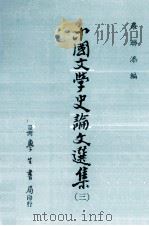 羅聯添編
中國文學史論文選集
(三)
臺灣學生書局印行
www.modtxt.com